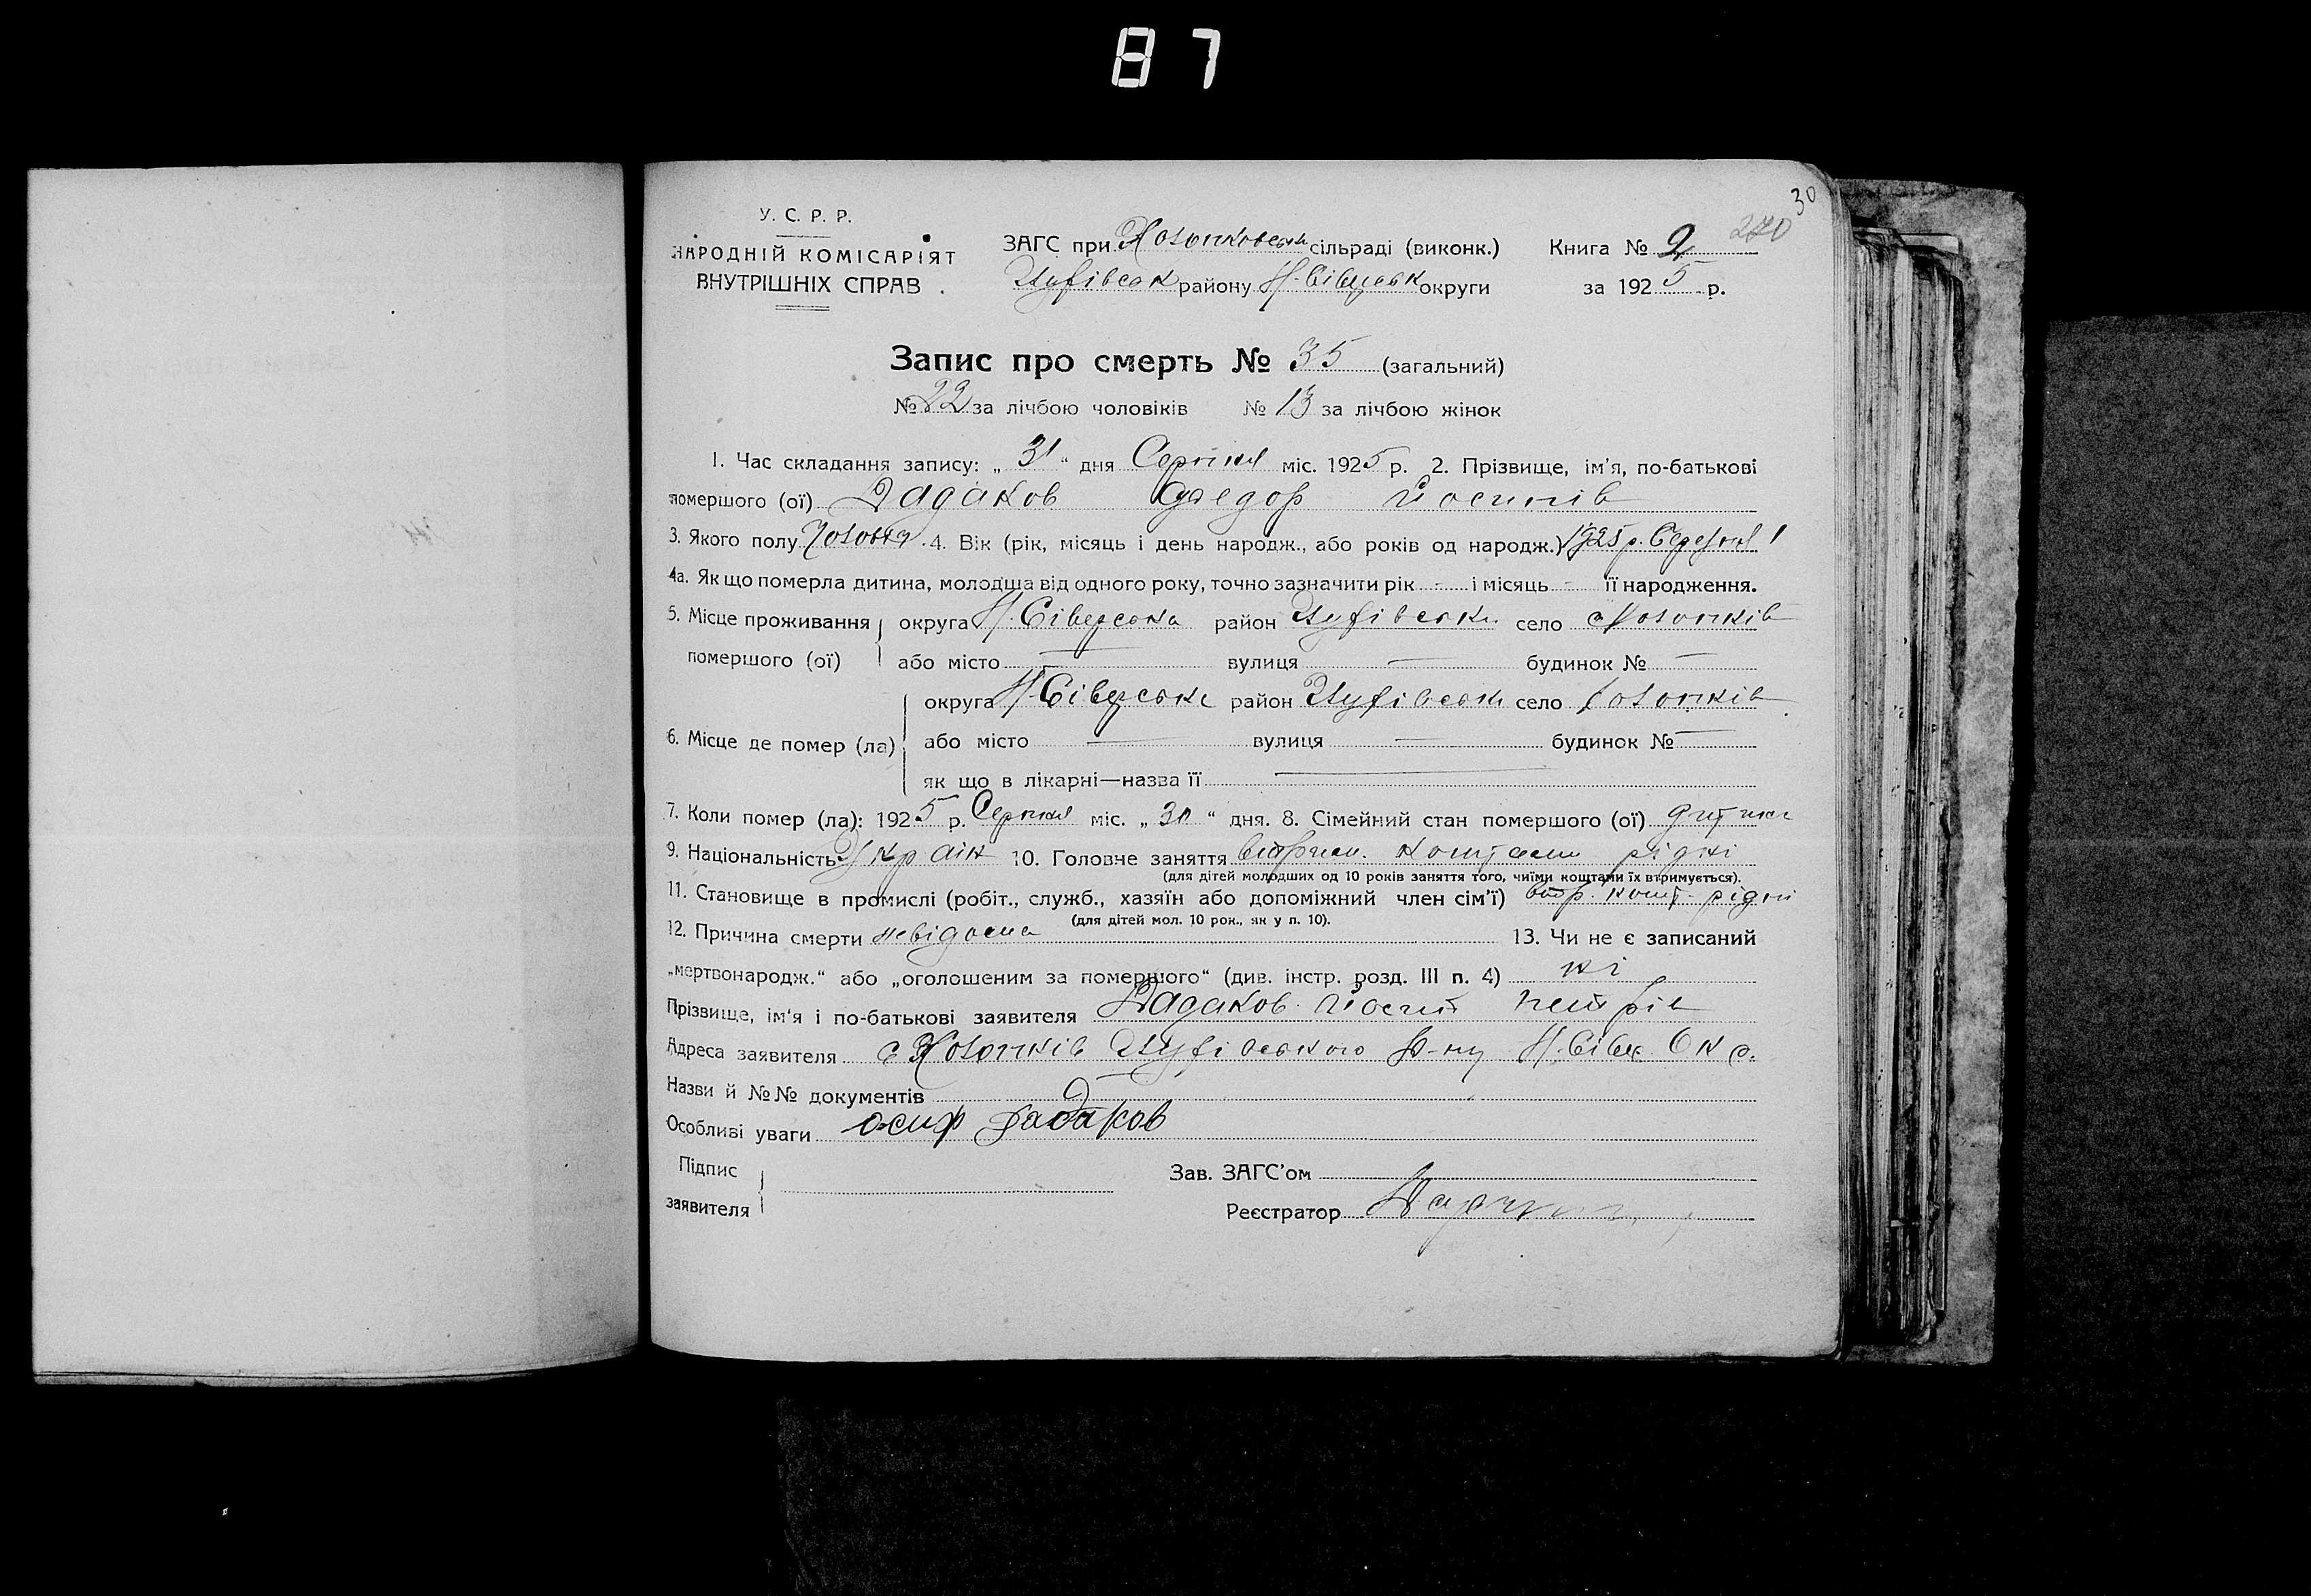 87
30
270
У. С. Р. Р.
НАРОДНІЙ КОМІСАРІЯТ
ВНУТРІШНІХ СПРАВ
ЗАГС при Холопковськ сільраді (виконк.)
району Н-Сіверськ округи
Книга № 2
за 1925 р.
Запис про смерть № 35 (загальний)
№ 22 за лічбою чоловіків № 13 за лічбою жінок
1. Час складання запису: „31“ дня Серпня міс. 1925 р. 2. Прізвище, ім'я, по-батькові
помершого (ої) Дадаков Федор Йосипів
3. Якого полу Чоловіч. 4. Вік (рік, місяць і день народж., або років од народж.) 1925 р. 1
4а. Як що померла дитина, молодша від одного року, точно зазначити рік — і місяць — її народження.
5. Місце проживання округа Н. Сіверська район село Холопків
помершого (ої) або місто — вулиця — будинок № —
округа Н-Сіверськ район село Холопків
6. Місце де помер (ла) або місто — вулиця — будинок № —
як що в лікарні—назва її —
7. Коли помер (ла): 1925 р. Серпня міс. „30“ дня. 8. Сімейний стан помершого (ої) дитина
9. Національність Україн 10. Головне заняття втрим. коштами рідні
(для дітей молодших од 10 років заняття того, чиїми коштами їх втримується).
11. Становище в промислі (робіт., служб., хазяїн або допоміжний член сім'ї) втр. кошт. рідні
(для дітей мол. 10 рок., як у п. 10).
12. Причина смерти невідома 13. Чи не є записаний
„мертвонародж.“ або „оголошеним за помершого“ (див. інстр. розд. III п. 4) ні
Прізвище, ім'я і по-батькові заявителя Дадаков Йосип Петрів
Адреса заявителя с Холопків р-ну Н. Сівер. Окр.
Назви й №№ документів
Особливі уваги осиф Дадаков
Підпис
заявителя
Зав. ЗАГС'ом
Реєстратор